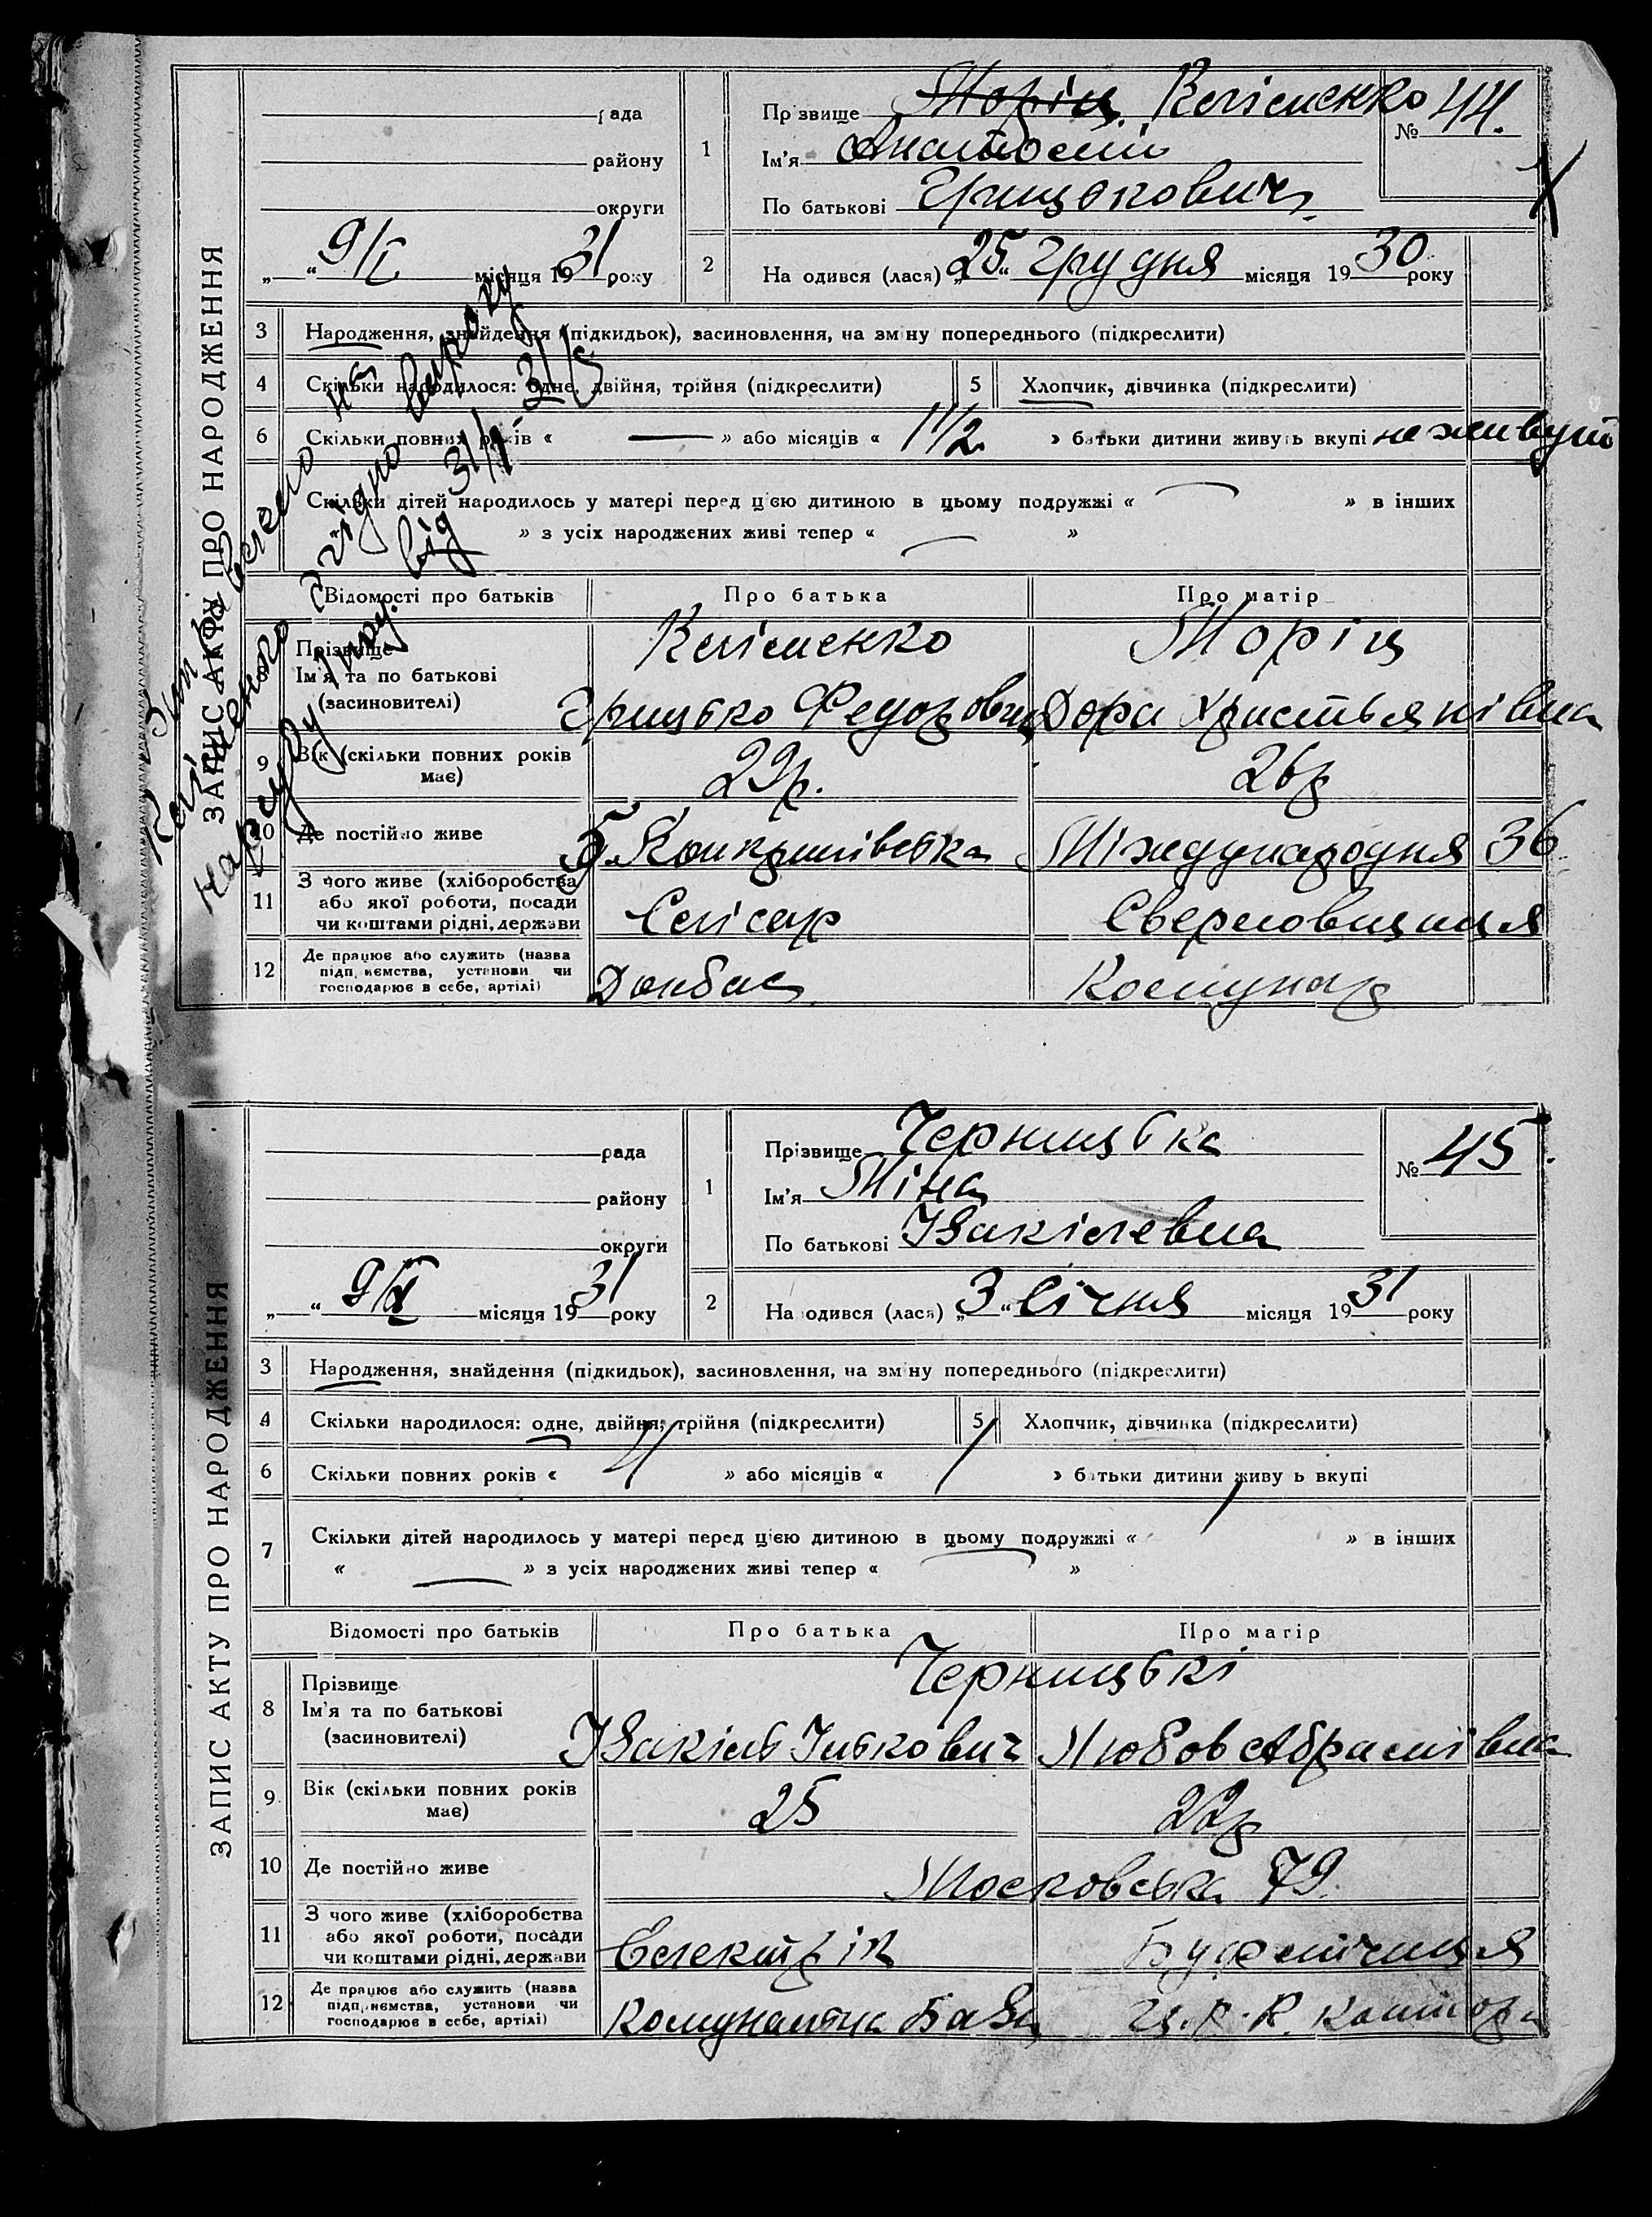 ЗАПИС АКТУ ПРО НАРОДЖЕННЯ
рада
району
округи
„ “ 9/I місяця 1931 року
1
Прізвище Моріц Клименко
№ 44.
Ім'я Анатолій
По батькові Грицькович
2
Народився (лася) „25“ грудня місяця 1930 року
3 Народження, знайдення (підкидьок), засиновлення, на зміну попереднього (підкреслити)
4 Скільки народилося: одне, двійня, трійня (підкреслити) 5 Хлопчик, дівчинка (підкреслити)
6 Скільки повних років « — » або місяців « 1/2 » батьки дитини живуть вкупі не живуть
Скільки дітей народилось у матері перед цією дитиною в цьому подружжі « » в інших
» з усіх народжених живі тепер « »
Відомості про батьків Про батька Про матір
Прізвище Клименко Моріц
Ім'я та по батькові
(засновителі) Грицько Федорович Дора Християнівна
9 Вік (скільки повних років має) 29р. 26р
10 Де постійно живе Міжународня 36
11 З чого живе (хліборобства
або якої роботи, посади
чи коштами рідні, держави Слісар Сверловщиця
12 Де працює або служить (назва
підприємства, установи чи
господарює в себе, артілі) Донбас Комунар
згідно вироку
Нарсуду від 31/I-31
ЗАПИС АКТУ ПРО НАРОДЖЕННЯ
рада
району
округи
„ “ 9/I місяця 1931 року
1
Прізвище Черницька
№ 45
Ім'я Міна
По батькові Ізакілевна
2
Народився (лася) „3“ січня місяця 1931 року
3 Народження, знайдення (підкидьок), засиновлення, на зміну попереднього (підкреслити)
4 Скільки народилося: одне, двійня, трійня (підкреслити) 5 Хлопчик, дівчинка (підкреслити)
6 Скільки повних років « » або місяців « » батьки дитини живуть вкупі
7 Скільки дітей народилось у матері перед цією дитиною в цьому подружжі « » в інших
« — » з усіх народжених живі тепер « »
Відомості про батьків Про батька Про матір
8 Прізвище Черницькі
Ім'я та по батькові
(засиновителі) Ізакіль Ількович Любов Абрамівна
9 Вік (скільки повних років має) 25 22р
10 Де постійно живе Московська 79
11 З чого живе (хліборобства
або якої роботи, посади
чи коштами рідні, держави Електрік Буфетчиця
12 Де працює або служить (назва
підприємства, установи чи
господарює в себе, артілі) Комунальна База Ц.Р.К. контора